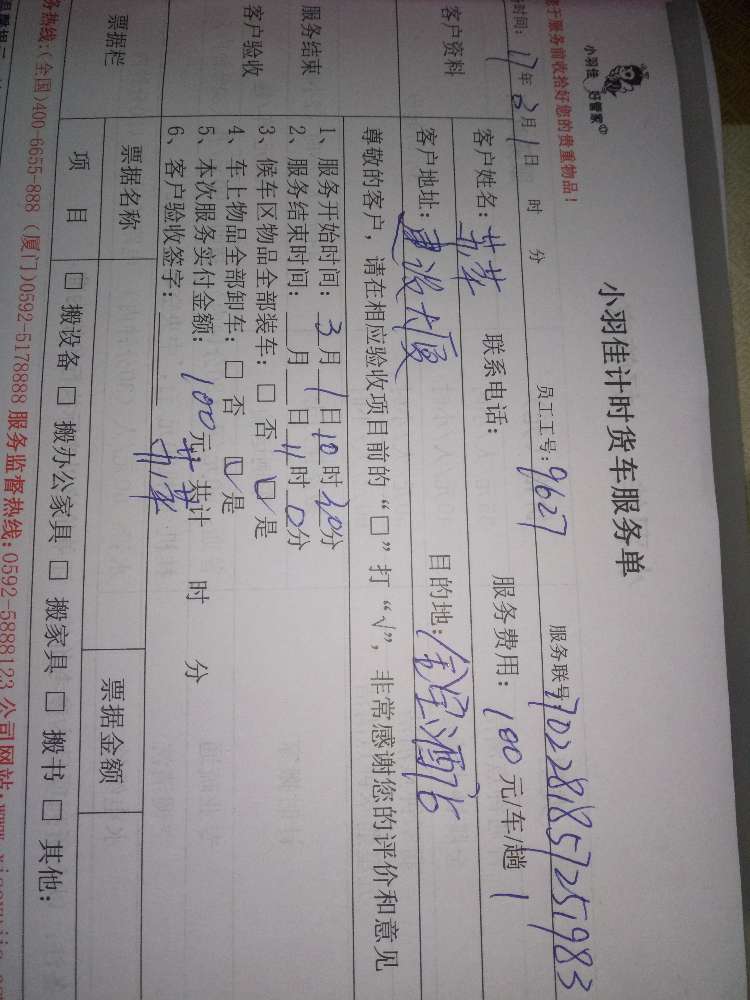 小羽佳 好管家
小羽佳计时货车服务单
于服务前收拾好您的贵重物品！
时间：17年3月1日 时 分 员工工号：9627 服务联号：7022818572519 83
客户资料
客户姓名：苏苹 联系电话： 服务费用：100元/车/趟 1
客户地址：建设大厦 目的地：金宝酒店
尊敬的客户，请在相应验收项目前的“□”打“√”，非常感谢您的评价和意见
服务结束
客户验收
1、服务开始时间：3月1日10时30分
2、服务结束时间：__月__日11时0分
3、候车区物品全部装车：□ 否 ☑是
4、车上物品全部卸车：□ 否 ☑是
5、本次服务实付金额：100元 共计 时 分
6、客户验收签字：
票据栏 票据名称 票据金额
项 目 □ 搬设备 □ 搬办公家具 □ 搬家具 □ 搬书 □ 其他：
务热线：(全国)400-6655-888 (厦门)0592-5178888 服务监督热线：0592-5888123 公司网站：www.